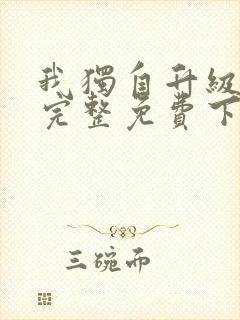 我獨自升級
完整免費下
三碗面